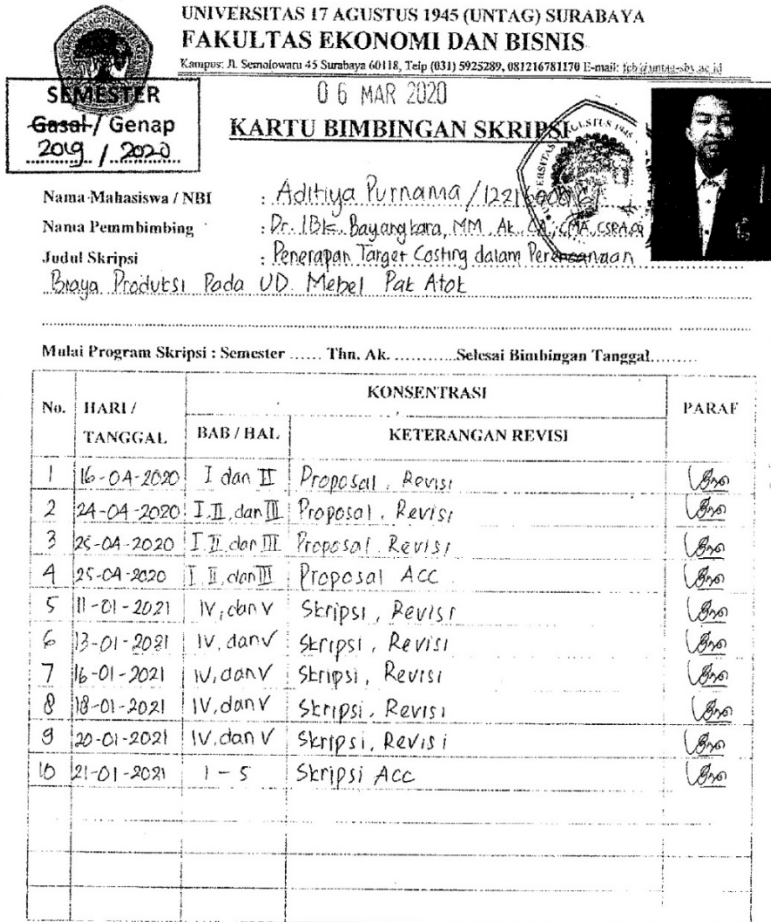 UNIVERSITAS 17 AGUSTUS 1945 (UNTAG) SURABAYA
FAKULTAS EKONOMI DAN BISNIS
Kampus: Jl. Semolowaru 45 Surabaya 60118, Telp (031) 5925289, 081216781170 E-mail: feb@untag-sby.ac.id
SEMESTER
Gasal / Genap
2019 / 2020
06 MAR 2020
KARTU BIMBINGAN SKRIPSI
Nama Mahasiswa / NBI : Aditiya Purnama /
Nama Pemmbimbing : Dr. IBK. Bayangkara, MM. Ak. CA, CMA, CSRA
Judul Skripsi : Penerapan Target Costing dalam Perencanaan
Biaya Produksi Pada UD. Mebel Pak Atok
Mulai Program Skripsi : Semester ...... Thn. Ak. ............Selesai Bimbingan Tanggal.........
No. HARI / TANGGAL KONSENTRASI PARAF
BAB / HAL KETERANGAN REVISI
1 16-04-2020 I dan II Proposal, Revisi
2 24-04-2020 I.II, dan III Proposal, Revisi
3 25-04-2020 I.II, dan III Proposal Revisi
4 25-04-2020 I II, dan III Proposal Acc
5 11-01-2021 IV, dan V Skripsi, Revisi
6 13-01-2021 IV, dan V Skripsi, Revisi
7 16-01-2021 IV, dan V Skripsi, Revisi
8 18-01-2021 IV, dan V Skripsi, Revisi
9 20-01-2021 IV, dan V Skripsi, Revisi
10 21-01-2021 1 - 5 Skripsi Acc